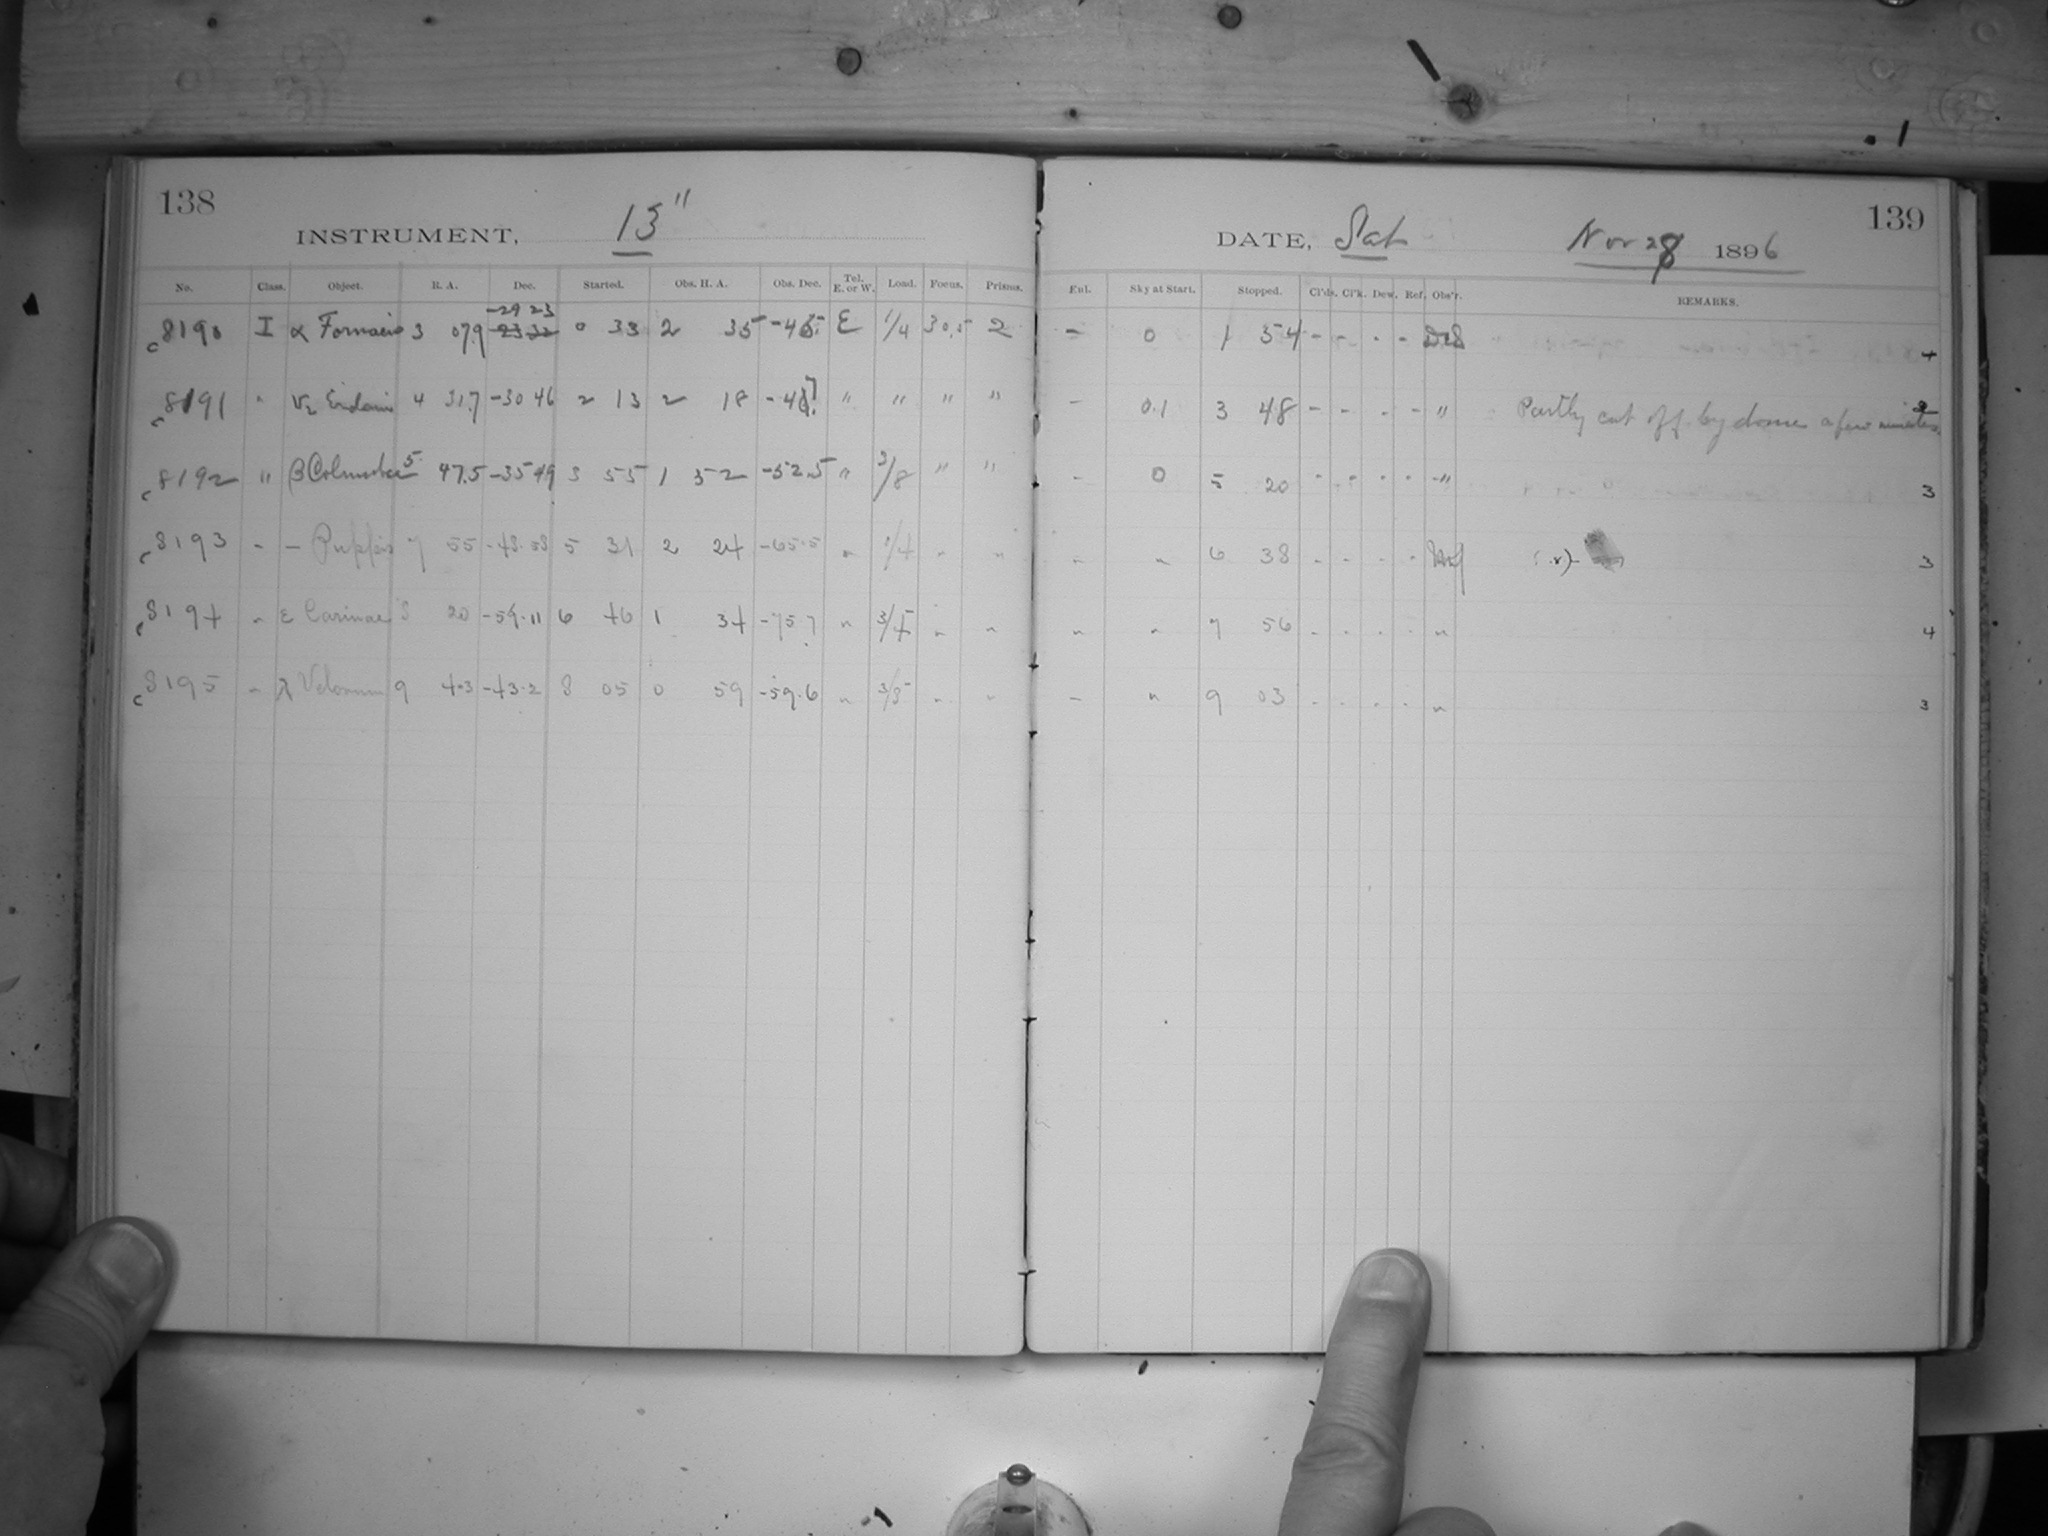 138
INSTRUMENT, 13"
No. Class. Object. R. A. Dec. Started. Obs. H. A. Obs. Dec. Tel. E. or W. Load. Focus. Prisms.
-29 23
c8190 I α Fornacis 3 07.9 -23 32 0 33 2 35 E 1/4 30.5 2
c8191 " υ2 Eridani 4 31.7 -30 46 2 13 2 18 " " " "
c8192 " β Columbae 5 47.5 -35 49 3 55 1 52 -52.5 " 3/8 " "
c8193 " - Puppis 7 55 -48.58 5 31 2 24 -65.5 " 1/4 " "
c8194 " ε Carinae 8 20 -59.11 6 46 1 34 -75.7 " 3/4 " "
c8195 " λ Velorum 9 4.3 -43.2 8 05 0 59 -59.6 " 3/8 " "
139
DATE, Sat Nov 28 1896
Eul. Sky at Start. Stopped. Cl'ds. Cl'k. Dew. Ref. Obs'r. REMARKS.
- 0 1 54 - - - - 4
- 0.1 3 48 - - - - " Partly cut off by dome a few minutes. 2
- 0 5 20 - - - - " 3
- " 6 38 - - - - 3
" " 7 56 - - - - " 4
- " 9 03 - - - - " 3